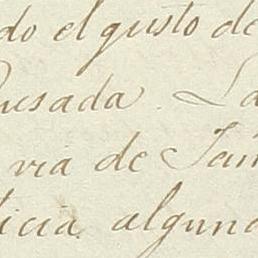 do el gusto de
Quesada. La
via de Jam
licia alguna